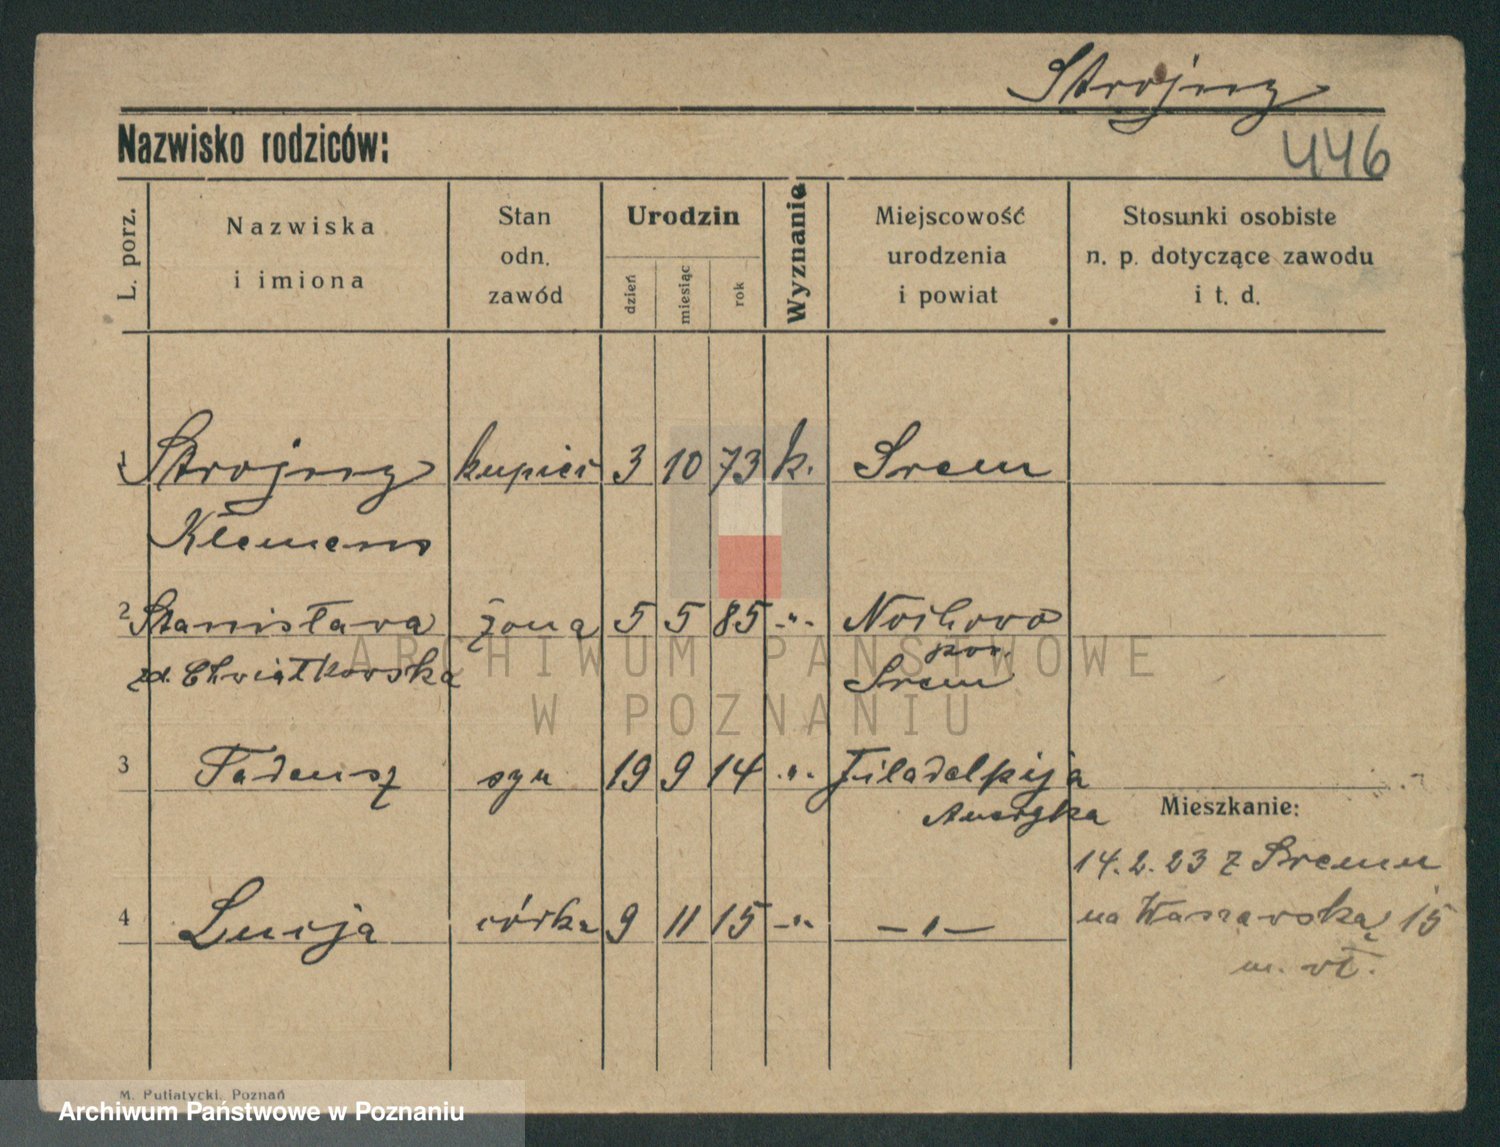 Strojny
Nazwisko rodziców:
446
L. porz.
Nazwiska
i imiona
Stan
odn.
zawód
Urodzin
dzień
miesiąc
rok
Wyznanie
Miejscowość
urodzenia
i powiat
Stosunki osobiste
n. p. dotyczące zawodu
i t. d.
1 Strojny kupiec 3 10 73 k. Srem
Klemens
2 Stanisława żona 5 5 85 -„- Nochowo
zd. Chwiatkowska pow.
Srem
3 Tadeusz syn 19 9 14 -„- Filadelpija
Ameryka
Mieszkanie:
14.2.23 z Sremu
4 Lucja córka 9 11 15 -„- -„-
na Warszawską 15
m. wł.
ARCHIWUM PAŃSTWOWE
W POZNANIU
M. Putiatycki, Poznań
Archiwum Państwowe w Poznaniu